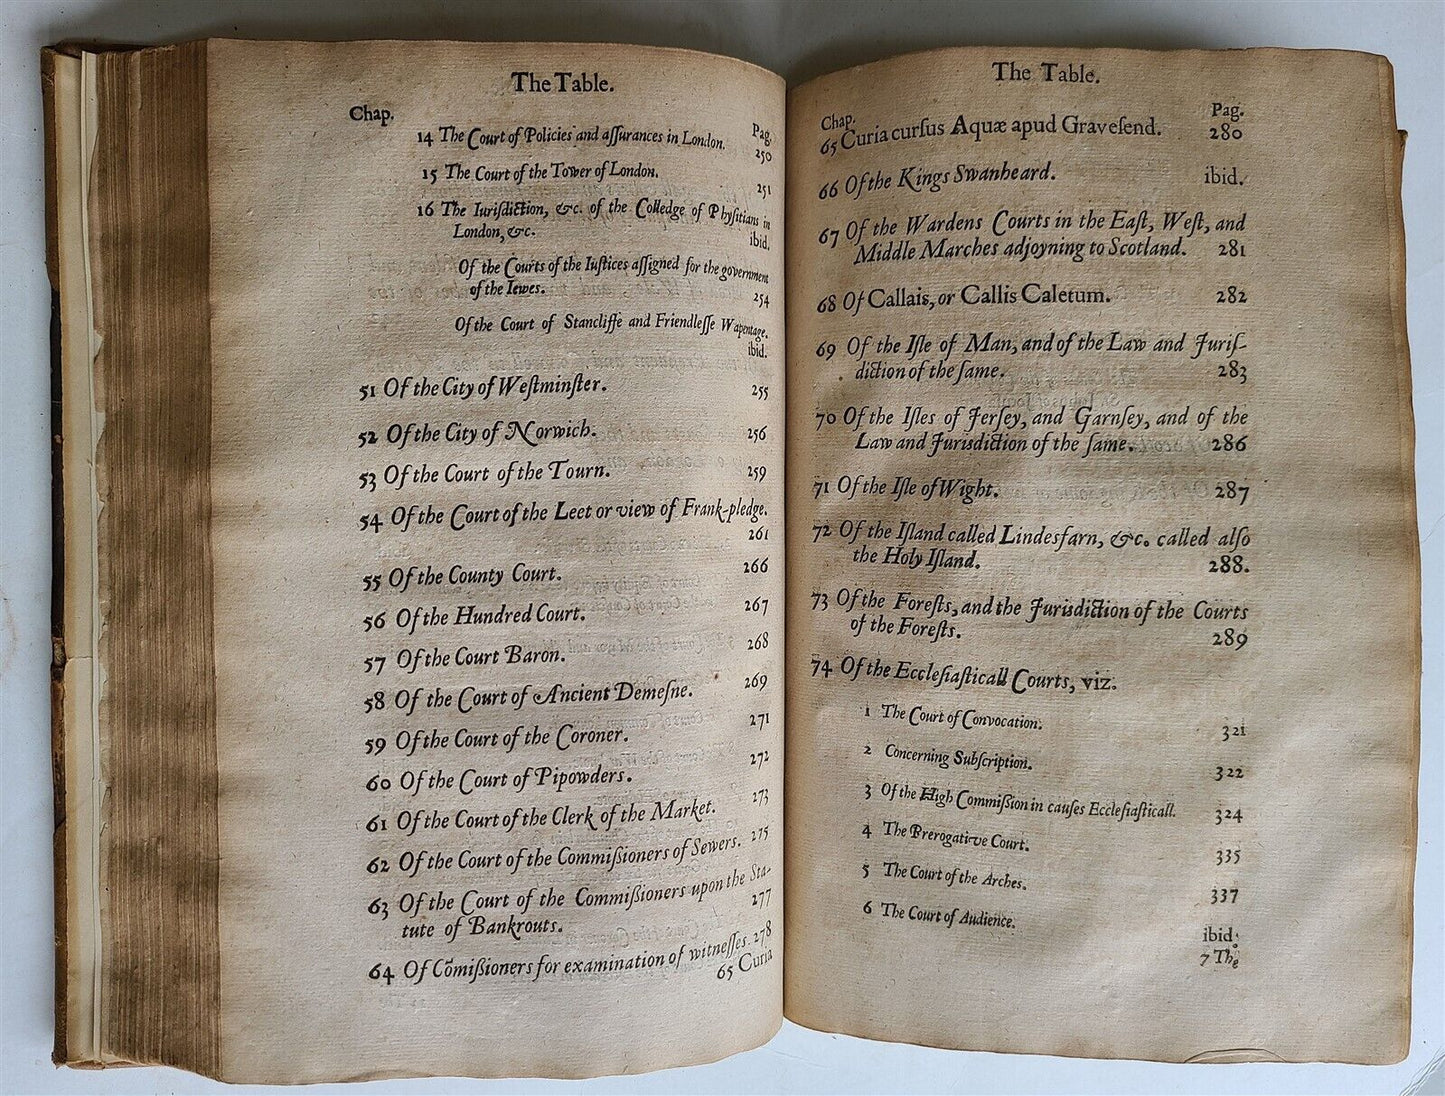 The Table.
Chap.
Pag.
14 The Court of Policies and aſſurances in London. 250
15 The Court of the Tower of London. 251
16 The Iuriſdiction, &c. of the Colledge of Phyſitians in
London, &c. ibid.
Of the Courts of the Iuſtices aſſigned for the government
of the Iewes. 254
Of the Court of Stancliffe and Friendleſſe Wapentage.
ibid.
51 Of the City of Weſtminſter. 255
52 Of the City of Norwich. 256
53 Of the Court of the Tourn. 259
54 Of the Court of the Leet or view of Frank-pledge.
261
55 Of the County Court. 266
56 Of the Hundred Court. 267
57 Of the Court Baron. 268
58 Of the Court of Ancient Demeſne. 269
59 Of the Court of the Coroner. 271
60 Of the Court of Pipowders. 272
61 Of the Court of the Clerk of the Market. 273
62 Of the Court of the Commiſſioners of Sewers. 275
63 Of the Court of the Commiſſioners upon the Sta-
tute of Bankrouts. 277
64 Of Cōmiſſioners for examination of witneſſes. 278
65 Curia
The Table.
Chap. Pag.
65 Curia curſus Aquæ apud Graveſend. 280
66 Of the Kings Swanheard. ibid.
67 Of the Wardens Courts in the Eaſt, Weſt, and
Middle Marches adjoyning to Scotland. 281
68 Of Callais, or Callis Caletum. 282
69 Of the Iſle of Man, and of the Law and Juriſ-
diction of the ſame. 283
70 Of the Iſles of Jerſey, and Garnſey, and of the
Law and Jurisdiction of the ſame. 286
71 Of the Iſle of Wight. 287
72 Of the Iſland called Lindesfarn, &c. called alſo
the Holy Iſland. 288.
73 Of the Foreſts, and the Jurisdiction of the Courts
of the Foreſts. 289
74 Of the Eccleſiaſticall Courts, viz.
1 The Court of Convocation. 321
2 Concerning Subſcription. 322
3 Of the High Commiſſion in cauſes Eccleſiaſticall. 324
4 The Prerogative Court. 335
5 The Court of the Arches. 337
6 The Court of Audience. ibid.
7 The